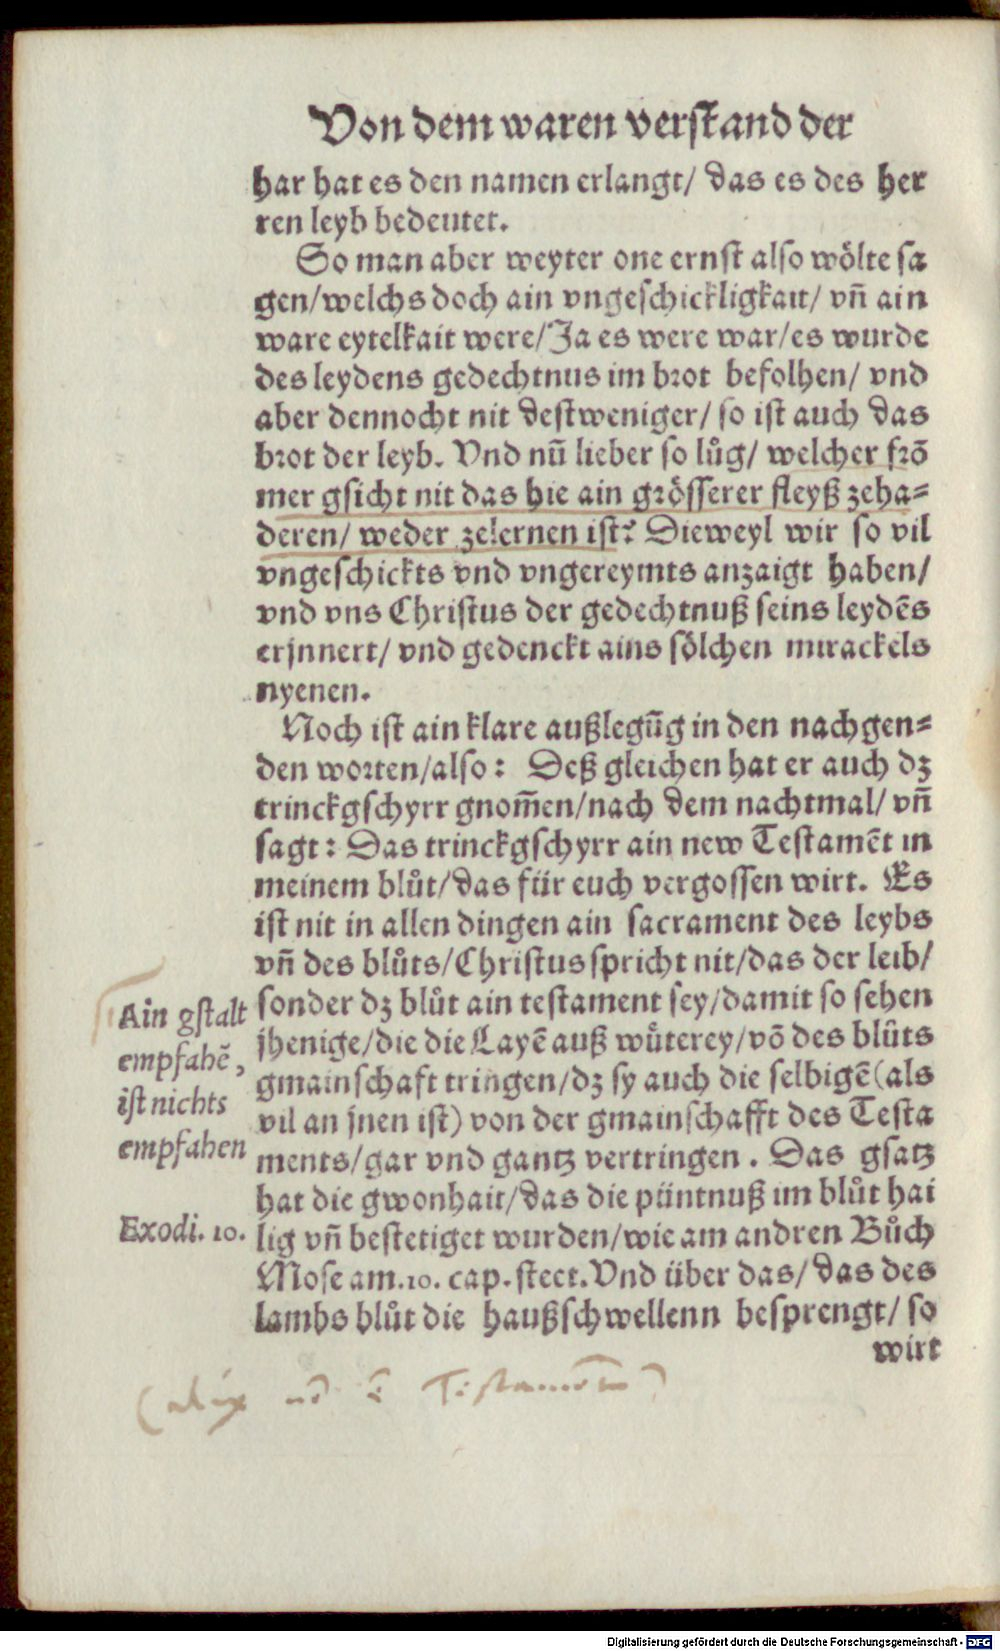 Von dem waren verstand der
har hat es den namen erlangt/ das es des her
ren leyb bedeutet.
So man aber weyter one ernst also wölte sa
gen/welchs doch ain vngeschickligkait/ vn̄ ain
ware eytelkait were/Ja es were war/es wurde
des leydens gedechtnus im brot befolhen/ vnd
aber dennocht nit destweniger/ so ist auch das
brot der leyb. Vnd nū lieber so lůg/ welcher frō
mer gsicht nit das hie ain grösserer fleyß zeha⸗
deren/ weder zelernen ist? Dieweyl wir so vil
vngeschickts vnd vngereymts anzaigt haben/
vnd vns Christus der gedechtnuß seins leydēs
erjnnert/ vnd gedenckt ains sölchen mirackels
nyenen.
Noch ist ain klare außlegūg in den nachgen⸗
den worten/also: Deß gleichen hat er auch dz
trinckgschyrr gnom̄en/nach dem nachtmal/ vn̄
sagt: Das trinckgschyrr ain new Testamēt in
meinem blůt/das für euch vergossen wirt. Es
ist nit in allen dingen ain sacrament des leybs
vn̄ des blůts/Christus spricht nit/das der leib/
sonder dz blůt ain testament sey/damit so sehen
jhenige/die die Layē auß wůterey/vō des blůts
gmainschaft tringen/dz sy auch die selbigē(als
vil an jnen ist) von der gmainschafft des Testa
ments/gar vnd gantz vertringen. Das gsatz
hat die gwonhait/das die püntnuß im blůt hai
lig vn̄ bestetiget wurden/wie am andren Bůch
Mose am.10. cap. steet. Vnd über das/ das des
lambs blůt die haußschwellenn besprengt/ so
wirt
Ain gstalt
empfahē,
ist nichts
empfahen
Exodi. 10.
Calix nō ē Testamētū
Digitalisierung gefördert durch die Deutsche Forschungsgemeinschaft - DFG